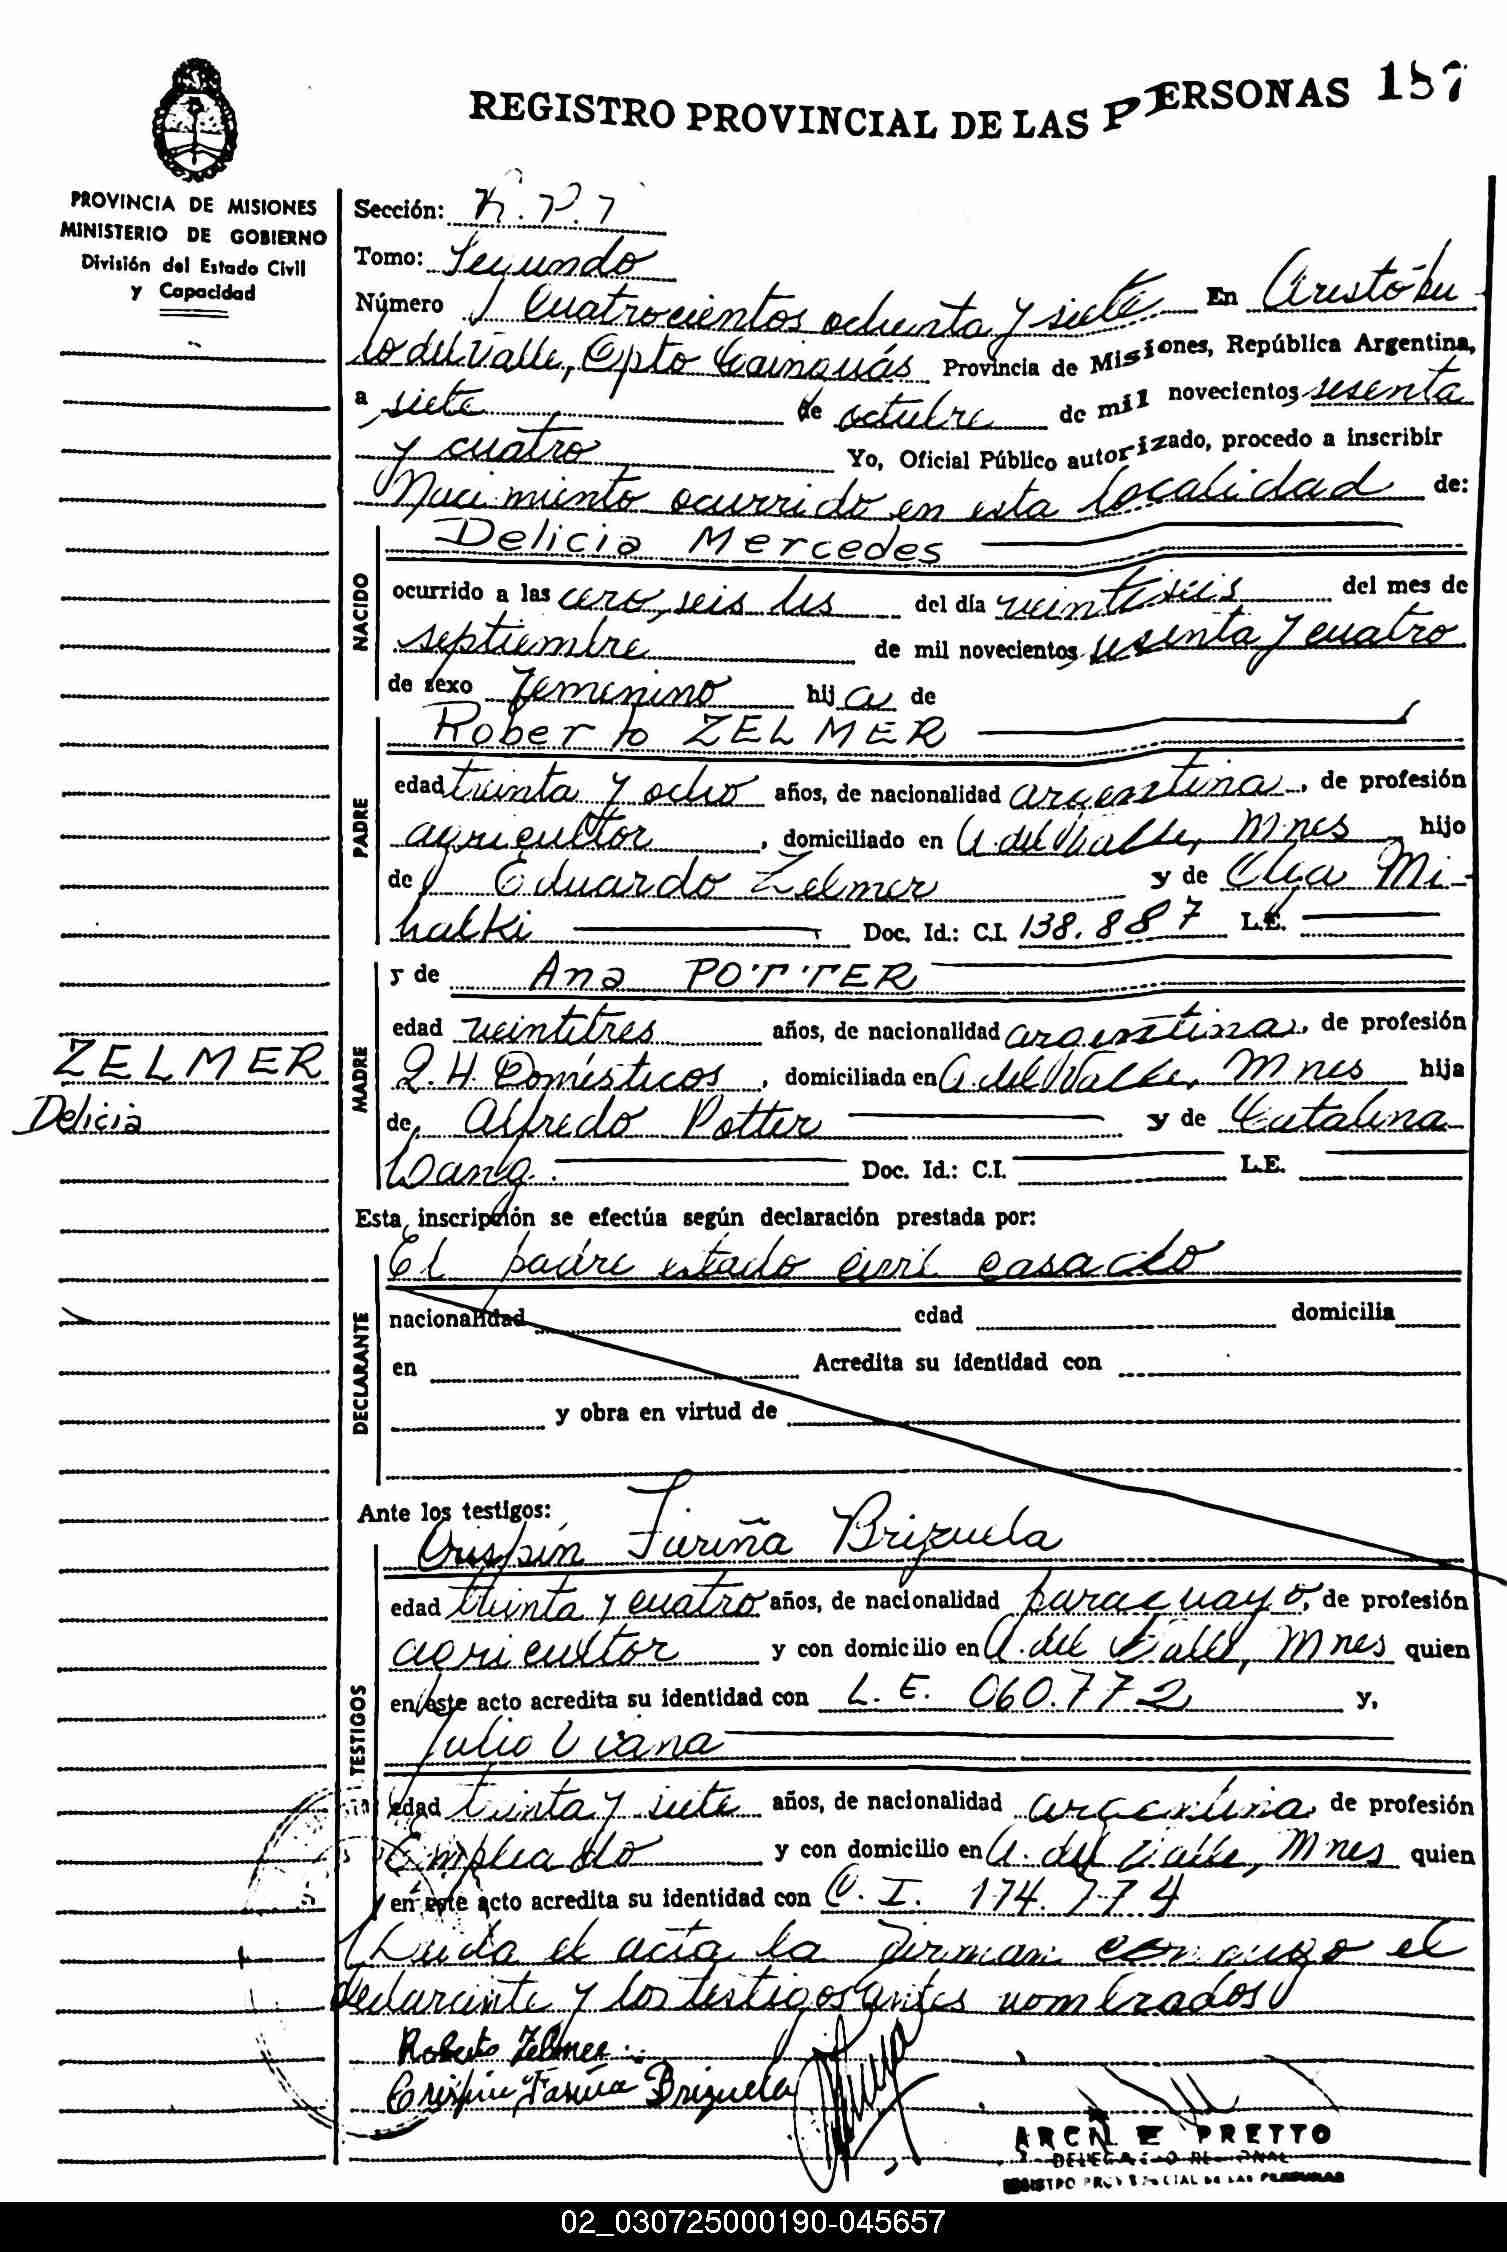 REGISTRO PROVINCIAL DE LAS PERSONAS 187
PROVINCIA DE MISIONES
MINISTERIO DE GOBIERNO
División del Estado Civil
y Capacidad
ZELMER
Delicia
Sección: R.P.7
Tomo: Segundo
Número Cuatrocientos ochenta y siete En Aristóbu
lo del Valle, Dpto Cainguás Provincia de Misiones, República Argentina,
a siete de octubre de mil novecientos sesenta
y cuatro Yo, Oficial Público autorizado, procedo a inscribir
Nacimiento ocurrido en esta localidad de:
NACIDO
Delicia Mercedes
ocurrido a las cero, seis hs del día veintiséis del mes de
septiembre de mil novecientos sesenta y cuatro
de sexo femenino hija de
PADRE
Roberto ZELMER
edad treinta y ocho años, de nacionalidad argentina, de profesión
agricultor, domiciliado en A. del Valle, Mnes hijo
de Eduardo Zelmer y de Olga Mi-
halki Doc. Id.: C.I. 138.887 L.E.
MADRE
y de Ana POTTER
edad veintitres años, de nacionalidad argentina, de profesión
Q.H. Domésticos, domiciliada en A. del Valle, Mnes hija
de Alfredo Potter y de Catalina
Wang. Doc. Id.: C.I. L.E.
Esta inscripción se efectúa según declaración prestada por:
DECLARANTE
El padre estado civil casado
nacionalidad edad domicilia
en Acredita su identidad con
y obra en virtud de
Ante los testigos:
TESTIGOS
Crispín Fariña Brizuela
edad treinta y cuatro años, de nacionalidad paraguayo, de profesión
agricultor y con domicilio en A. del Valle, Mnes quien
en este acto acredita su identidad con L.E. 060.772 y,
Julio Viana
edad treinta y siete años, de nacionalidad argentina, de profesión
Empleado y con domicilio en A. del Valle, Mnes quien
en este acto acredita su identidad con C.I. 174.774
Leida el acta la firman conmigo el
declarante y los testigos antes nombrados
Roberto Zelmer
Crispin Fariña Brizuela
PRETTO
02_030725000190-045657